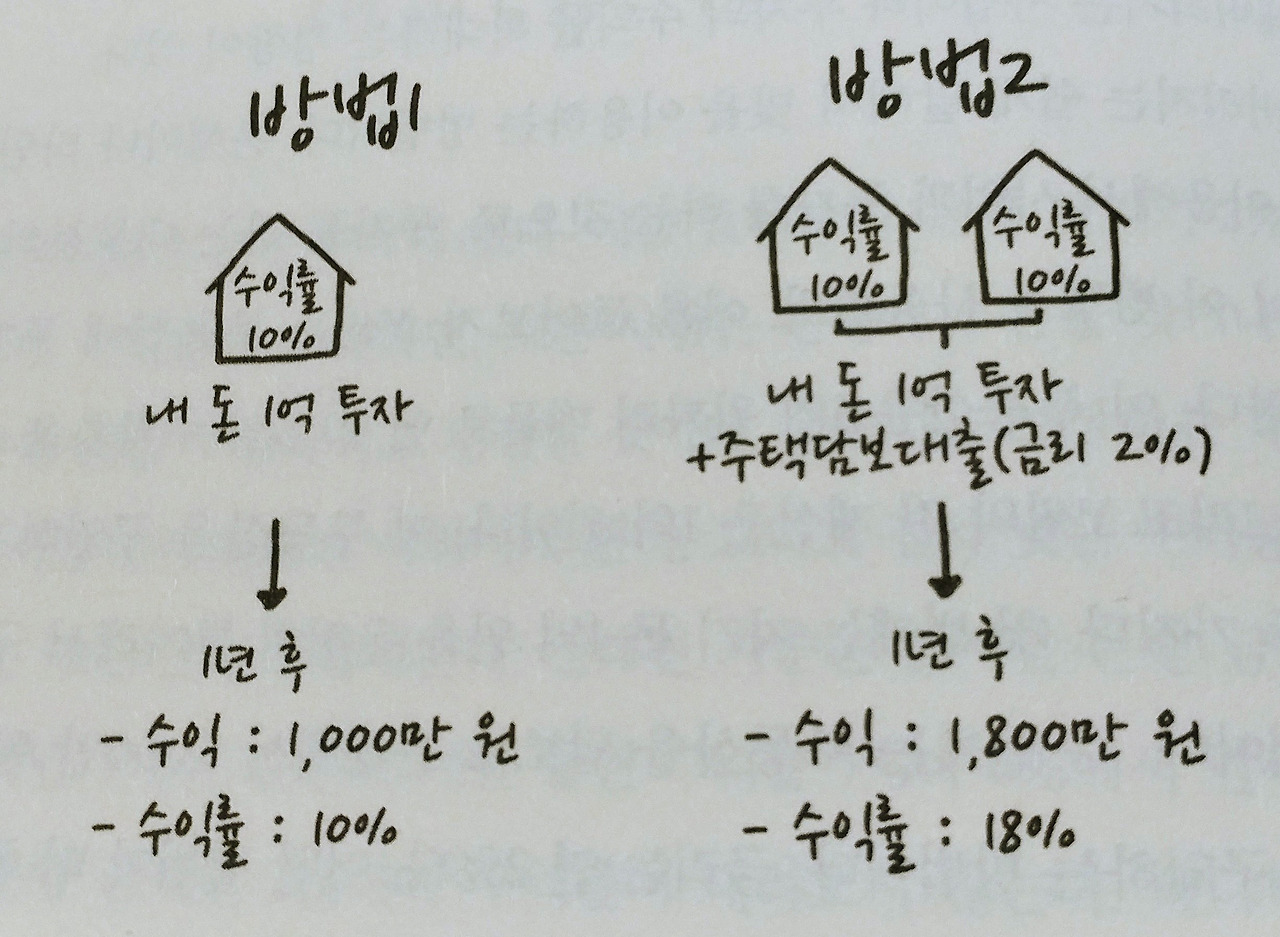 방법1
수익률
10%
내 돈 1억 투자
1년 후
- 수익 : 1,000만 원
- 수익률 : 10%
방법2
수익률
10%
수익률
10%
내 돈 1억 투자
+주택담보대출(금리 2%)
1년 후
- 수익 : 1,800만 원
- 수익률 : 18%